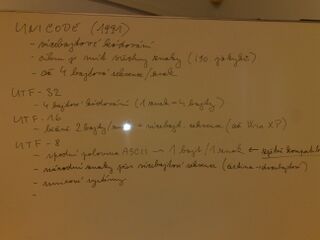 UNICODE (1991)
- vícebajtové kódování
- cílem je mít všechny znaky (190 jazyků)
- až 4 bajtová sekvence/znak
UTF-32
- 4 bajtov. kódování (1 znak = 4 bajty)
UTF-16
- běžně 2 bajty/znak + vícebajt. sekvence (až Win XP)
UTF-8
- spodní polovina ASCII → 1 bajt/1 znak ← zpětná kompatibil
- národní znaky jsou vícebajtové sekvence (čeština - dvoubajtové)
- unixové systémy
-